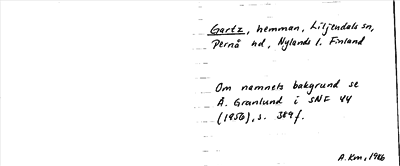 Gartz, hemman, Liljendals sn,
Pernå hd, Nylands l. Finland
Om namnets bakgrund se
Å. Granlund i SNF 44
(1956), s. 389 f.
A.Km, 1986